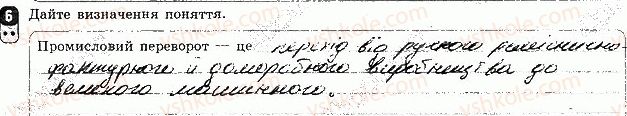 6 Дайте визначення поняття.
Промисловий переворот — це перехід від ручного ремісничо-
фактурного й доморобного виробництва до
великого машинного.